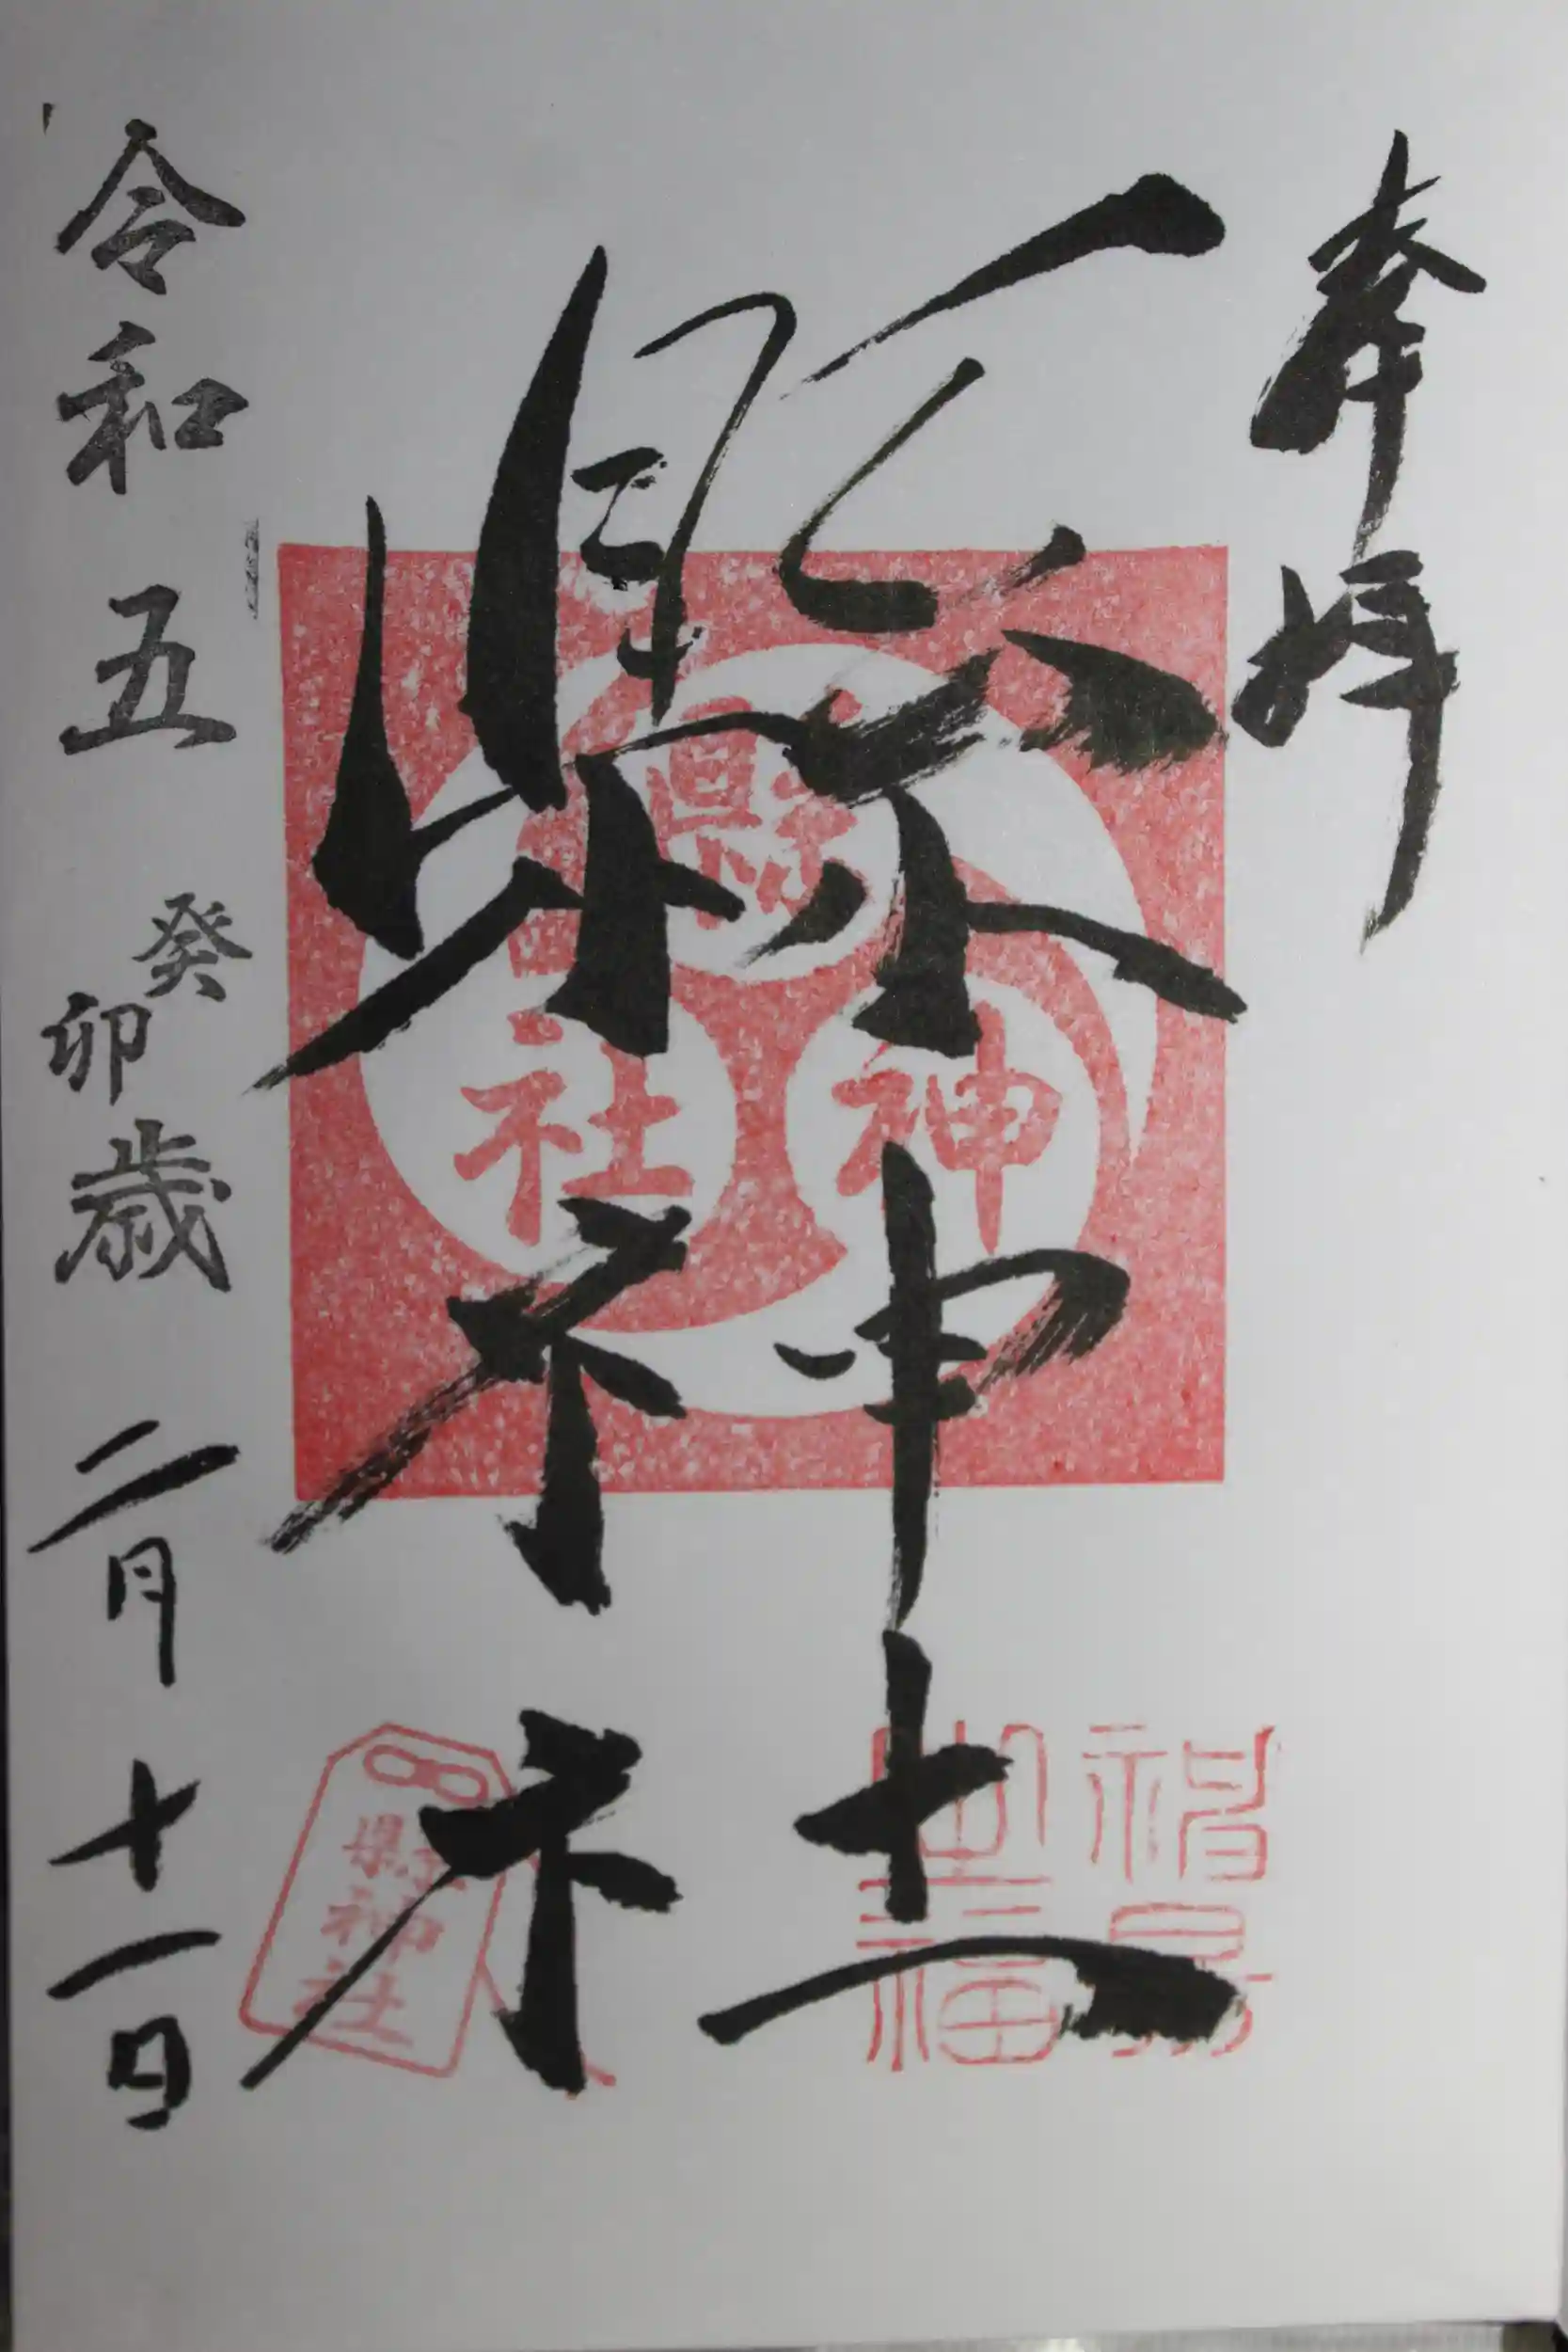 奉拝
縣神社
令和五癸卯歳二月十一日
縣神社
縣神社